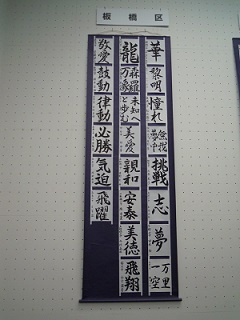 板橋区
華
黎明
憧れ
無我夢中
挑戦
志
夢
一万里空
龍
森羅万象
未知へと歩む
美愛
親和
安泰
美徳
飛翔
敬愛
鼓動
律動
必勝
気迫
飛躍